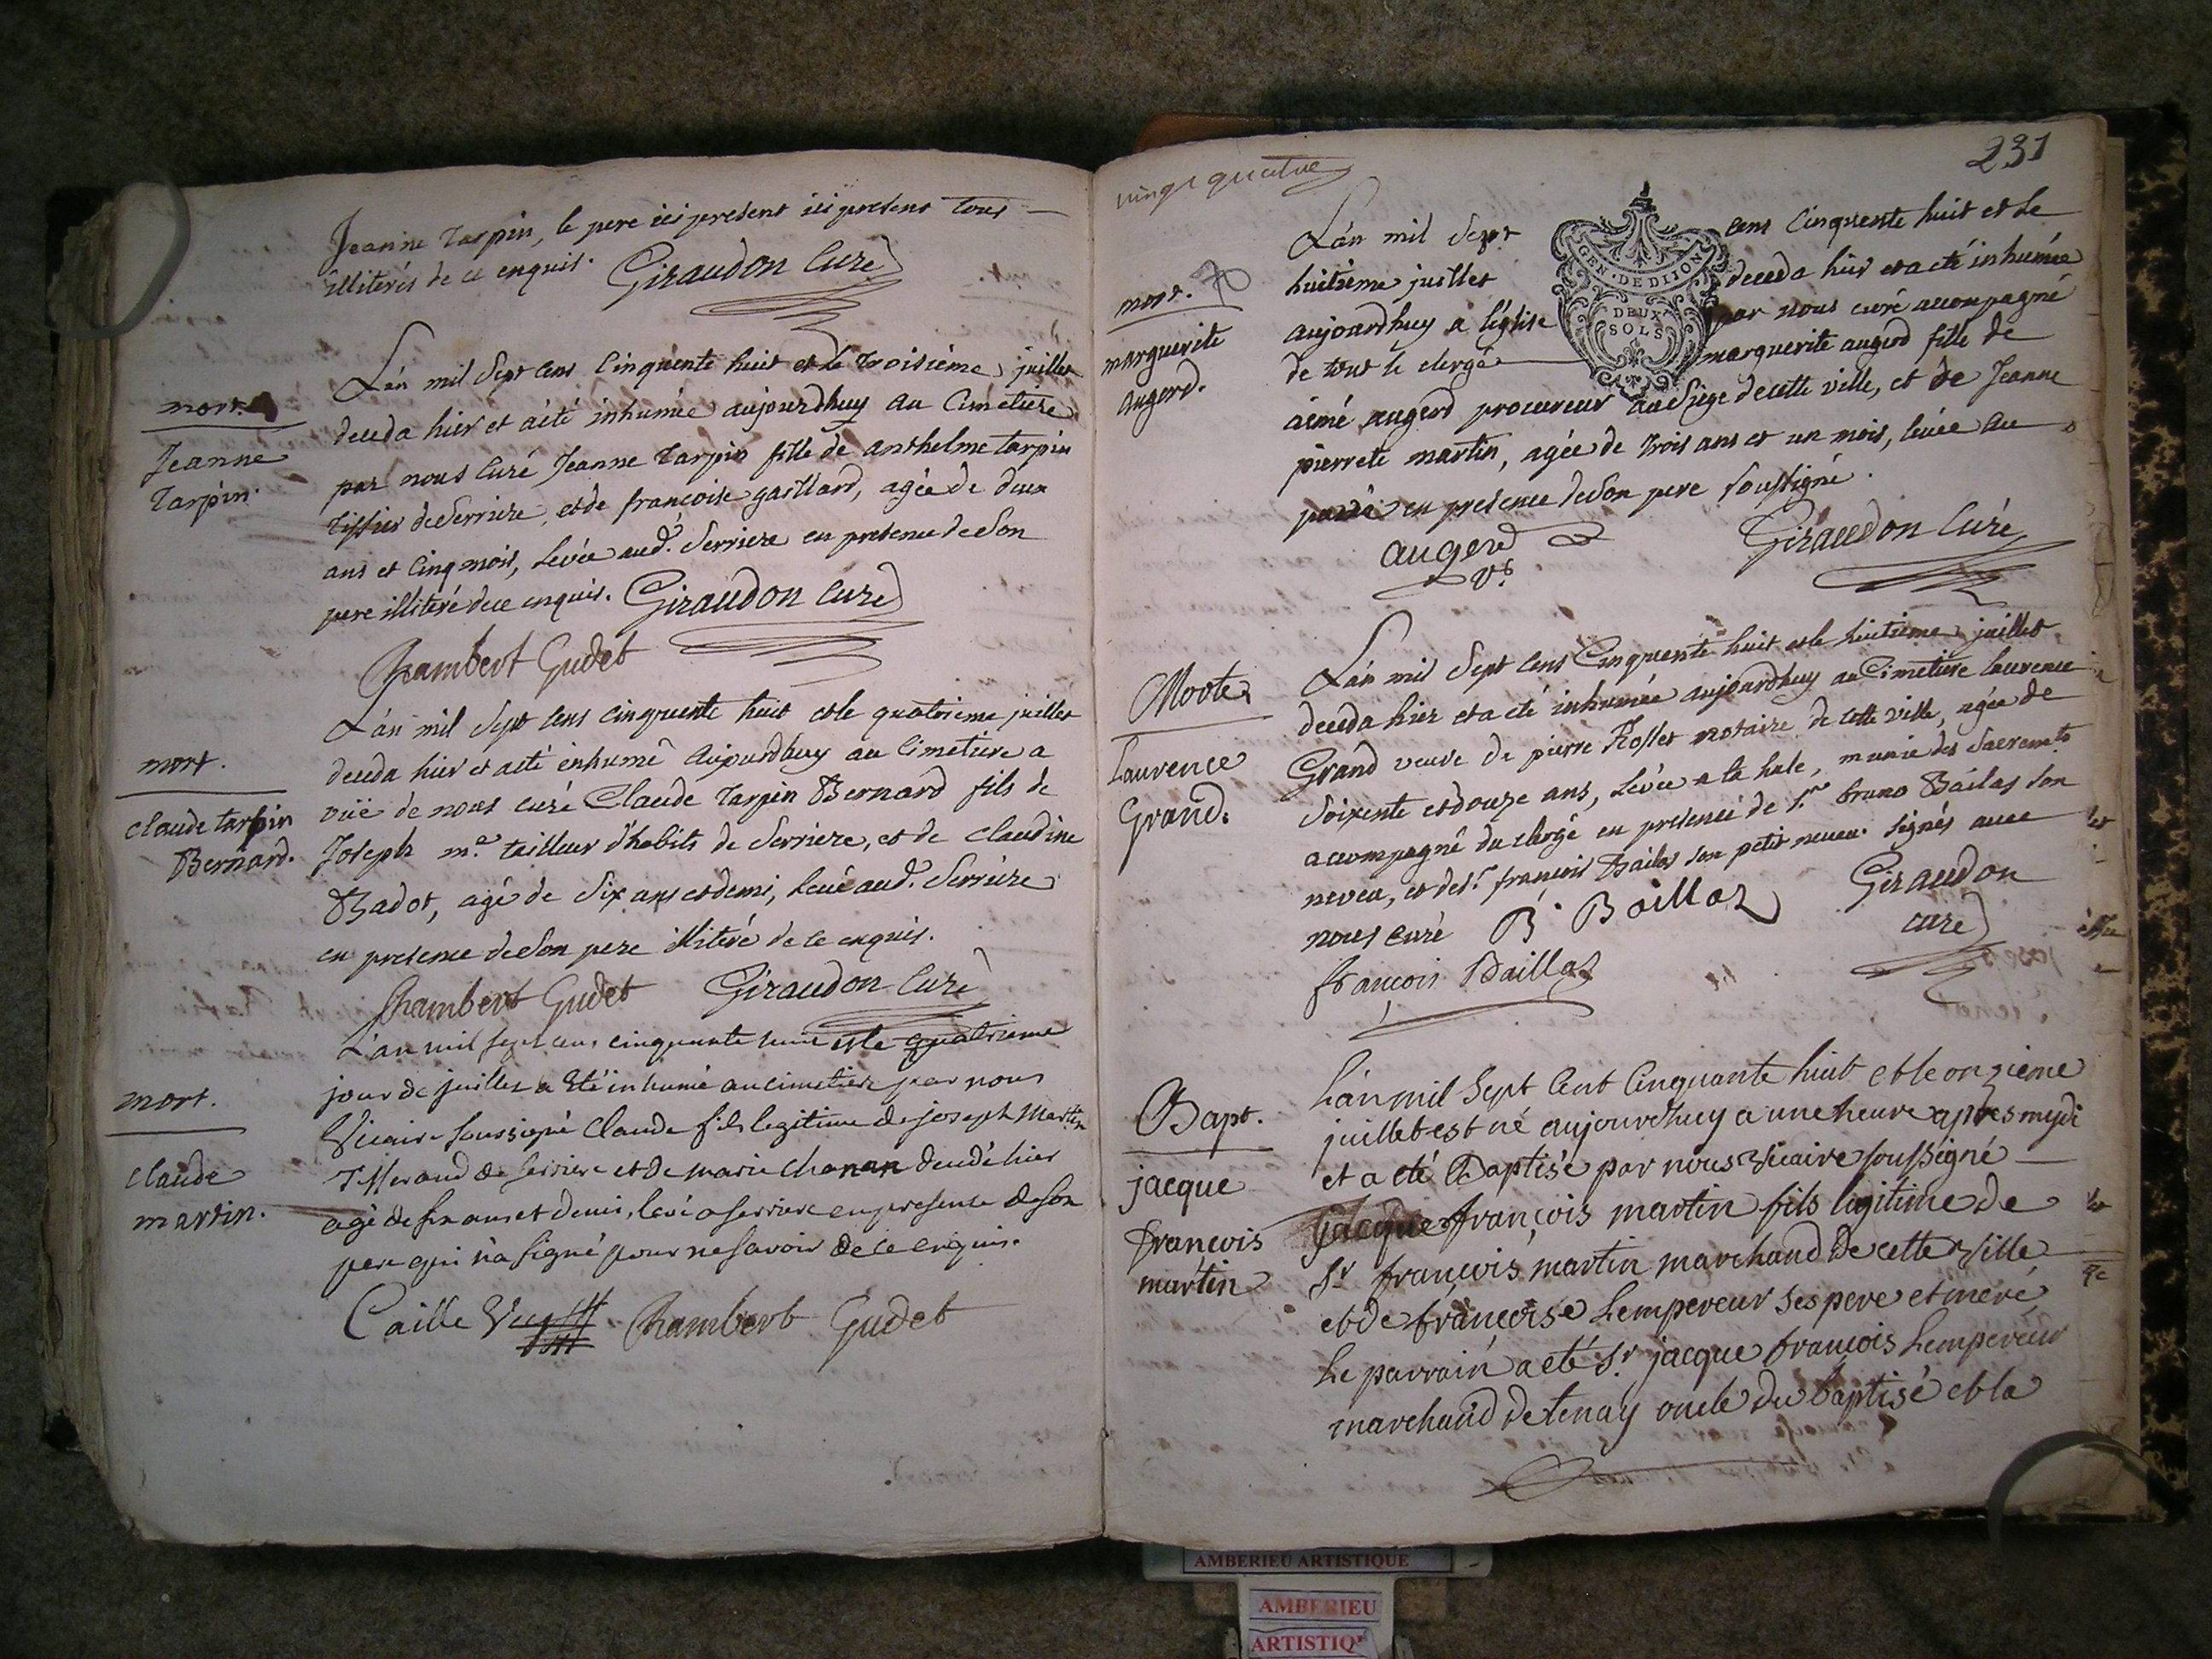 Jeanne Tarpin, le pere ici present ici present tous
illiterés de ce enquis. Giraudon Curé
mort.
Jeanne
Tarpin.
L'án mil Sept Cens Cinquente huit et le troisiéme juillet
deceda hier et a été inhumée aujourdhuy au Cimetiere
par nous Curé Jeanne Tarpin fille de anthelme tarpin
Tissier de Serriere, et de francoise gaillard, agée de deux
ans et Cinq mois, Levée aud.t Serriere en presence de Son
pere illiteré de ce enquis. Giraudon Curé
Chambert Gudet
mort.
Claude tarpin
Bernard.
L'án mil Sept Cens cinquente huit et le quatrieme juillet
deceda hier et a été inhumé aujourdhuy au Cimetiere a
vüe de nous curé Claude Tarpin Bernard fils de
Joseph m.e tailleur d'habits de Serriere, et de Claudine
Badot, agé de Six ans et demi, Levé aud.t Serriere
en presence de Son pere illiteré de ce enquis.
Chambert Gudet Giraudon Curé
mort.
Claude
martin.
L'an mil sept cens cinquante huit et le quatrieme
jour de juillet a eté inhumé au cimetiere par nous
Vicaire soussigné Claude fils legitime de joseph Martin
Tisserand de serriere et de marie chanan decedé hier
agé de six ans et demi, levé a serriere en presence de son
pere qui n'a signé pour ne savoir de ce enquis.
Caille Chambert Gudet
vingt quatre
231
GEN. DE DIJON
DEUX
SOLS
mort. 70
marguerite
augerd.
L'án mil Sept cens Cinquente huit et le
huitième juillet deceda hier et a été inhumée
aujourdhuy a l'église par nous curé accompagné
de tout le clergé marguerite augerd fille de
aimé augerd procureur au Siege de cette ville, et de Jeanne
pierrete martin, agée de trois ans et un mois, levée au
en presence de Son pere Soussigné.
augerd Giraudon Curé
Morte
Laurence
Grand.
L'án mil Sept Cens Cinquente huit et le huitieme juillet
deceda hier et a eté inhumée aujourdhuy au Cimetiere laurence
Grand veuve de pierre Rosset notaire de cette ville, agée de
Soixente et douze ans, Levée a la hale, munie des Sacrements
accompagné du clergé en presence de S.r bruno Bailas son
neveu, et de S.r françois Bailas son petit neveu signés avec
nous curé B. Baillaz Giraudon
curé
françois Baillaz
Bapt.
jacque
francois
martin
L'án mil Sept Cent Cinquante huit et le onzieme
juillet est né aujourdhuy a une heure aprés mydi
et a eté Baptisé par nous Vicaire soussigné
jacque françois martin fils legitime de
S.r françois martin marchand De cette Ville
et de françoise Lempereur ses pere et mere
Le parrain a eté S.r jacque françois Lempereur
marchand de tenay oncle du baptisé et la
AMBERIEU ARTISTIQUE
AMBERIEU
ARTISTIQ